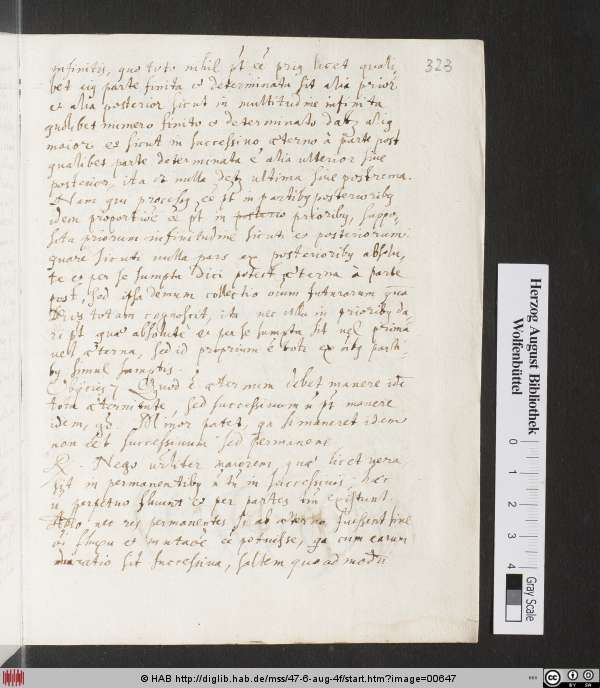 323
infinitis, quo toto nihil pt ee prius licet quali
bet eius parte finita et determinata sit alia prior
et alia posterior sicut in multitudine infinita
quolibet numero finito et determinato datur aliq
maior et sicut in successivo æterno à parte post
qualibet parte determinata e alia ulterior sive
posterior, ita et nulla det ultima sive postrema.
Nam qui processus ee pt in partibus posterioribus
idem proportione ee pt in prioribus, suppo,
sita priorum infinitudine sicuti et posteriorum
quare sicuti nulla pars ex posterioribus absolu,
te et per se sumpta dici potest æterna à parte
post, sed ipsa demum collectio oium futurorum qua
Deus totam cognoscit, ita nec ulla in prioribus da
ri pt quæ absolute et per se sumpta sit vel prima
vel æterna, sed id proprium e toti ex oibus parti
bus simul sumptis.
Obijcies 7 Quod e æternum debet manere idē
tota æternitate, sed successivum n pt manere
idem, go. Minor patet, qa si maneret idem
non eet successivum sed permanens
R. Nego maiorem, quæ licet vera
sit in permanentibus n tn in successivis; hæc
n perpetuo fluunt et per partes tm existunt
nec res permanentes si ab æterno fuissent sine
oi fluxu et mutatioe ee potuisse, qa cum earum
duratio sit successiva, saltem quoad modū
Herzog August Bibliothek
Wolfenbüttel
0
1
2
3
4
Gray Scale
© HAB http://diglib.hab.de/mss/47-6-aug-4f/start.htm?image=00647
CC BY SA